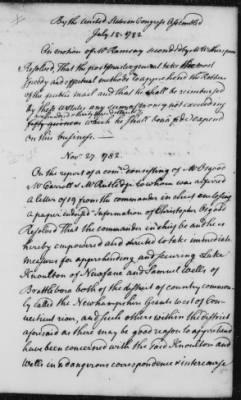 By the United States in Congress Assembled
July 18. 1782
On motion of Mr Ramsay seconded by Mr Witherspoon
Resolved, That the post master general take the most
speedy and effectual methods to apprehend the Robbers
of the public mail and that he shall be reimbursed
by these States any sum of money not exceeding
which he shall bona fide expend
on this business.
Nov. 27. 1782
On the report of a comee consisting of Mr Osgood
Mr Garrett & Mr Rutledge to whom was referred
a letter of 19 from the commander in chief enclosing
a paper entitled Information of Christopher Osgood
Resolved That the commander in chief be and he is
hereby empowered and directed to take immediate
measures for apprehending and securing Luke
Knoulton of Newfane and Samuel Wells of
Brattleboro both of the district of country commonly
called the Newhampshire Grants west of Con-
necticut river, and such others within the district
aforesaid as there may be good reason to apprehend
have been concerned with the said Knoulton and
Wells in a dangerous correspondence & intercourse